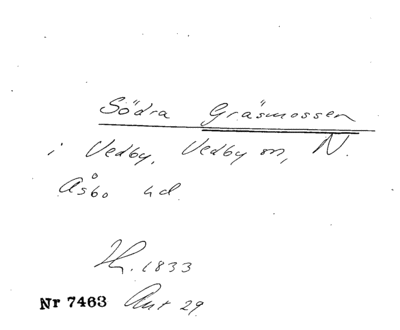 Södra Gräsmossen
i Vedby, Vedby sn, N.
Åsbo hd
H. 1833
Nr 7463 Ant 29